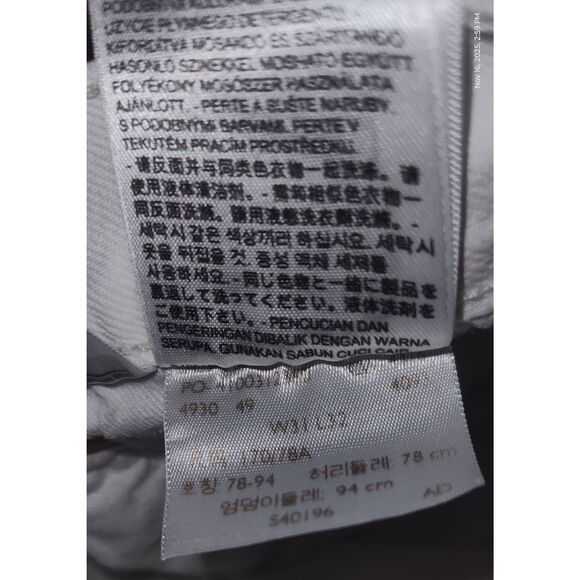 UŻYCIE PŁYNNEGO DETERGENTU
KIFORDÍTVA MOSANDÓ ÉS SZÁRÍTANDÓ
HASONLÓ SZINEKKEL MOSHATÓ EGYÜTT
FOLYÉKONY MOSÓSZER HASZNÁLATA
AJÁNLOTT. - PERTE A SUŠTE NARUBY
S PODOBNÝMI BARVAMI. PERTE V
TEKUTÉM PRACÍM PROSTŘEDKU.
- 请反面并与同类色衣物一起洗涤。请
使用液体清洁剂。-
세탁시 같은 색상끼리 하십시오. 세탁시
옷을 뒤집을 것. 중성 액체 세제를
사용하세요. - 同じ色物と一緒に製品を
裏返して洗ってください。液体洗剤を
ご使用下さい。- PENCUCIAN DAN
PENGERINGAN DIBALIK DENGAN WARNA
SERUPA, GUNAKAN SABUN CUCI CAIR
PO 4093
4930 49
W31 L32
170/78A
호칭 78-94 허리둘레: 78 cm
엉덩이둘레: 94 cm AD
S40196
Nov 16, 2025, 2:59 PM